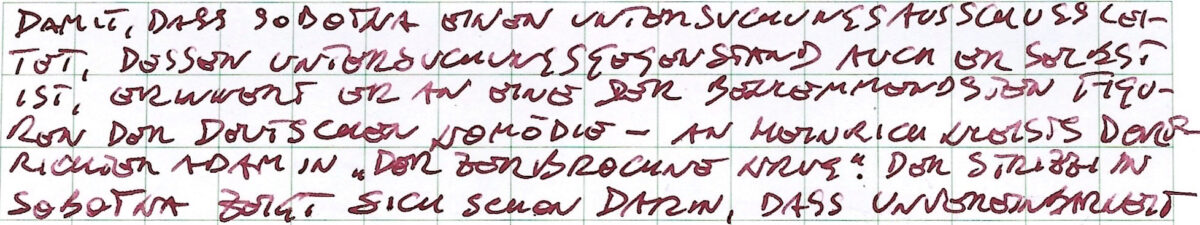 DAMIT, DASS SOBOTKA EINEN UNTERSUCHUNGSAUSSCHUSS LEI-
TET, DESSEN UNTERSUCHUNGSGEGENSTAND AUCH ER SELBST
IST, ERINNERT ER AN EINE DER BEKLEMMENDSTEN FIGU-
REN DER DEUTSCHEN KOMÖDIE – AN HEINRICH KLEISTS DORF
RICHTER ADAM IN „DER ZERBROCHNE KRUG“. DER STRIZZI IN
SOBOTKA ZEIGT SICH SCHON DARIN, DASS UNVEREINBARKEIT